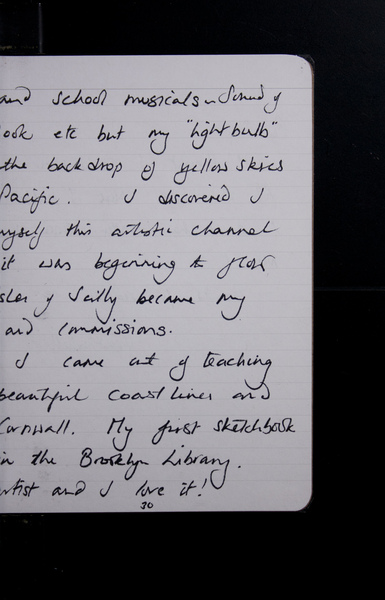 and school musicals - Sound of
ook etc but my "lightbulb"
the backdrop of yellow skies
Pacific. I discovered I
myself this artistic channel
it was beginning to flow
sles of Scilly became my
and commissions.
I came out of teaching
beautiful coastlines and
Cornwall. My first sketchbook
in the Brooklyn Library.
artist and I love it!
30